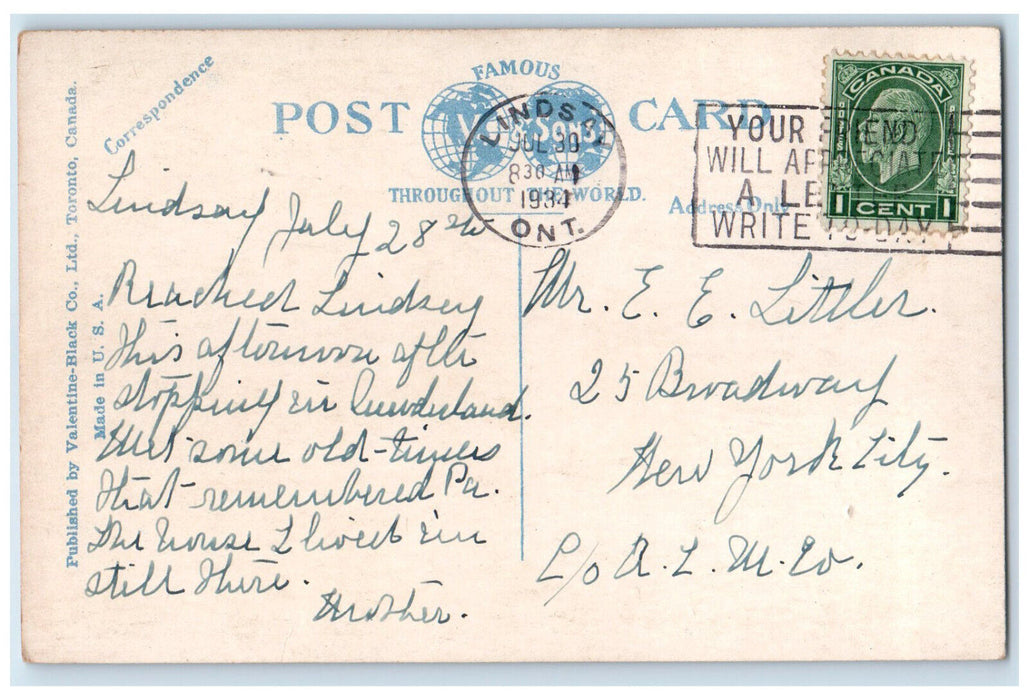 Published by Valentine-Black Co., Ltd., Toronto, Canada.
Made in U. S. A.
Correspondence
POST CARD
FAMOUS
V & Sons
THROUGHOUT THE WORLD.
Address Only
LINDSAY
JUL 30
830 AM
1934
ONT.
YOUR FRIEND
WILL APPRECIATE
A LETTER
WRITE TO-DAY
CANADA
POSTES POSTAGE
1 CENT 1
Lindsay July 28th
Reached Lindsey
this afternoon after
stopping in
Met some old-timers
that remembered Pa.
The house I lived in
still there.
Mother.
Mr. E. E. Littler.
25 Broadway
New York City.
C/o A. L. M. Co.